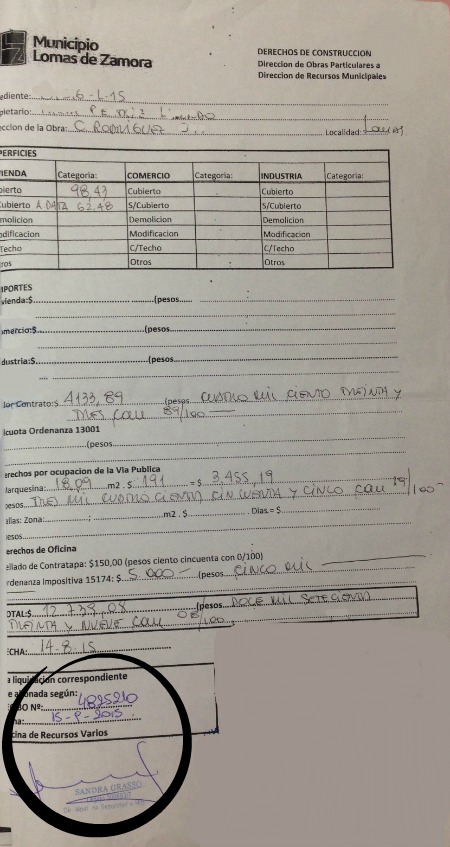 Municipio
Lomas de Zamora
DERECHOS DE CONSTRUCCION
Direccion de Obras Particulares a
Direccion de Recursos Municipales
ediente: 6-L-15
pietario:
eccion de la Obra: C. RODRIGUEZ Localidad: Lomas
PERFICIES
IENDA Categoria: COMERCIO Categoria: INDUSTRIA Categoria:
bierto 98,43 Cubierto Cubierto
ubierto A DATA 62,48 S/Cubierto S/Cubierto
molicion Demolicion Demolicion
odificacion Modificacion Modificacion
Techo C/Techo C/Techo
ros Otros Otros
PORTES
vienda:$ (pesos
mercio:$ (pesos
dustria:$ (pesos
lor Contrato:$ 4133,89 (pesos CUATRO MIL CIENTO TREINTA Y
TRES CON 89/100
icuota Ordenanza 13001
(pesos
erechos por ocupacion de la Via Publica
Marquesina: 18,09 m2 . $ 191 = $ 3.455,19
pesos TRES MIL CUATROCIENTO CINCUENTA Y CINCO CON 19/100
allas: Zona: ; m2 . $ . Dias = $
esos
erechos de Oficina
ellado de Contratapa: $150,00 (pesos ciento cincuenta con 0/100)
rdenanza Impositiva 15174: $ 5.000 (pesos CINCO MIL
OTAL:$ 12.739,08 (pesos DOCE MIL SETECIENTO
TREINTA Y NUEVE CON 08/100
CHA: 14-8-15
a liquidación correspondiente
e abonada según:
BO Nº: 4825210
na: 15-9-2015
cina de Recursos Varios
SANDRA GRASSO